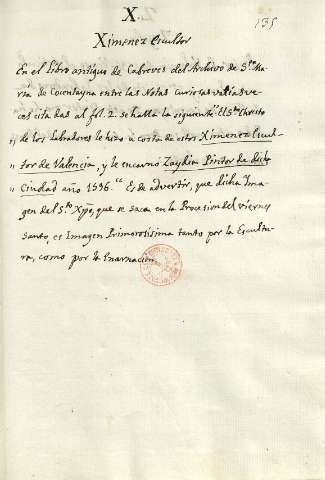 X.
135
Ximenez Escultor
En el Libro antiguo de Cabreves del Archivo de S.ta Ma-
ria de Cocentayna entre las Notas Curiosas varias ve-
ces citadas al fol. 2. se halla la siguiente: El S.to Christo
„ de los Labradores le hizo a costa de estos Ximenez Escul-
„ tor de Valencia, y le encarnó Zaydia Pintor de dicha
„ Ciudad año 1596. Es de advertir, que dicha Ima-
gen del S.to Xpo, que se saca en la Procesion del viernes
Santo, es Imagen Primorosissima tanto por la Escultu-
ra, como por la Encarnacion.